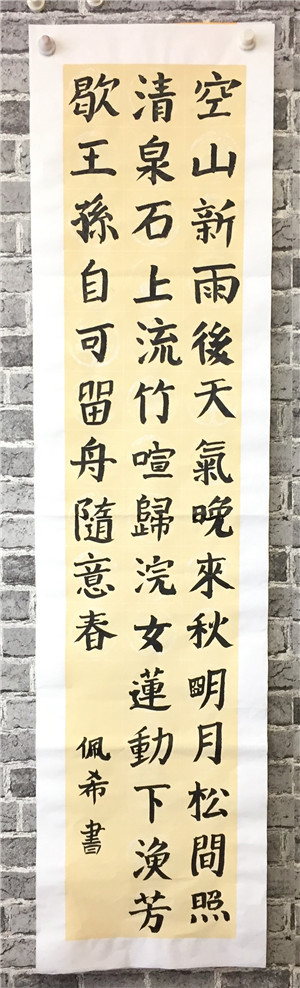 空山新雨後天氣晚來秋明月松間照
清泉石上流竹喧歸浣女蓮動下漁芳
歇王孫自可留舟隨意春
佩希書